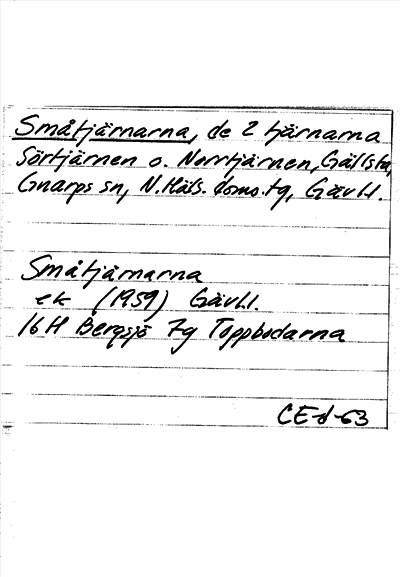 Småtjärnarna, de 2 tjärnarna
Sörtjärnen o. Norrtjärnen, Gällsta,
Gnarps sn, N. Häls. doms. tg, Gävl.l.
Småtjärnarna
ek (1959) Gävl.l.
16H Bergsjö 7g Toppbodarna
CE-d-63